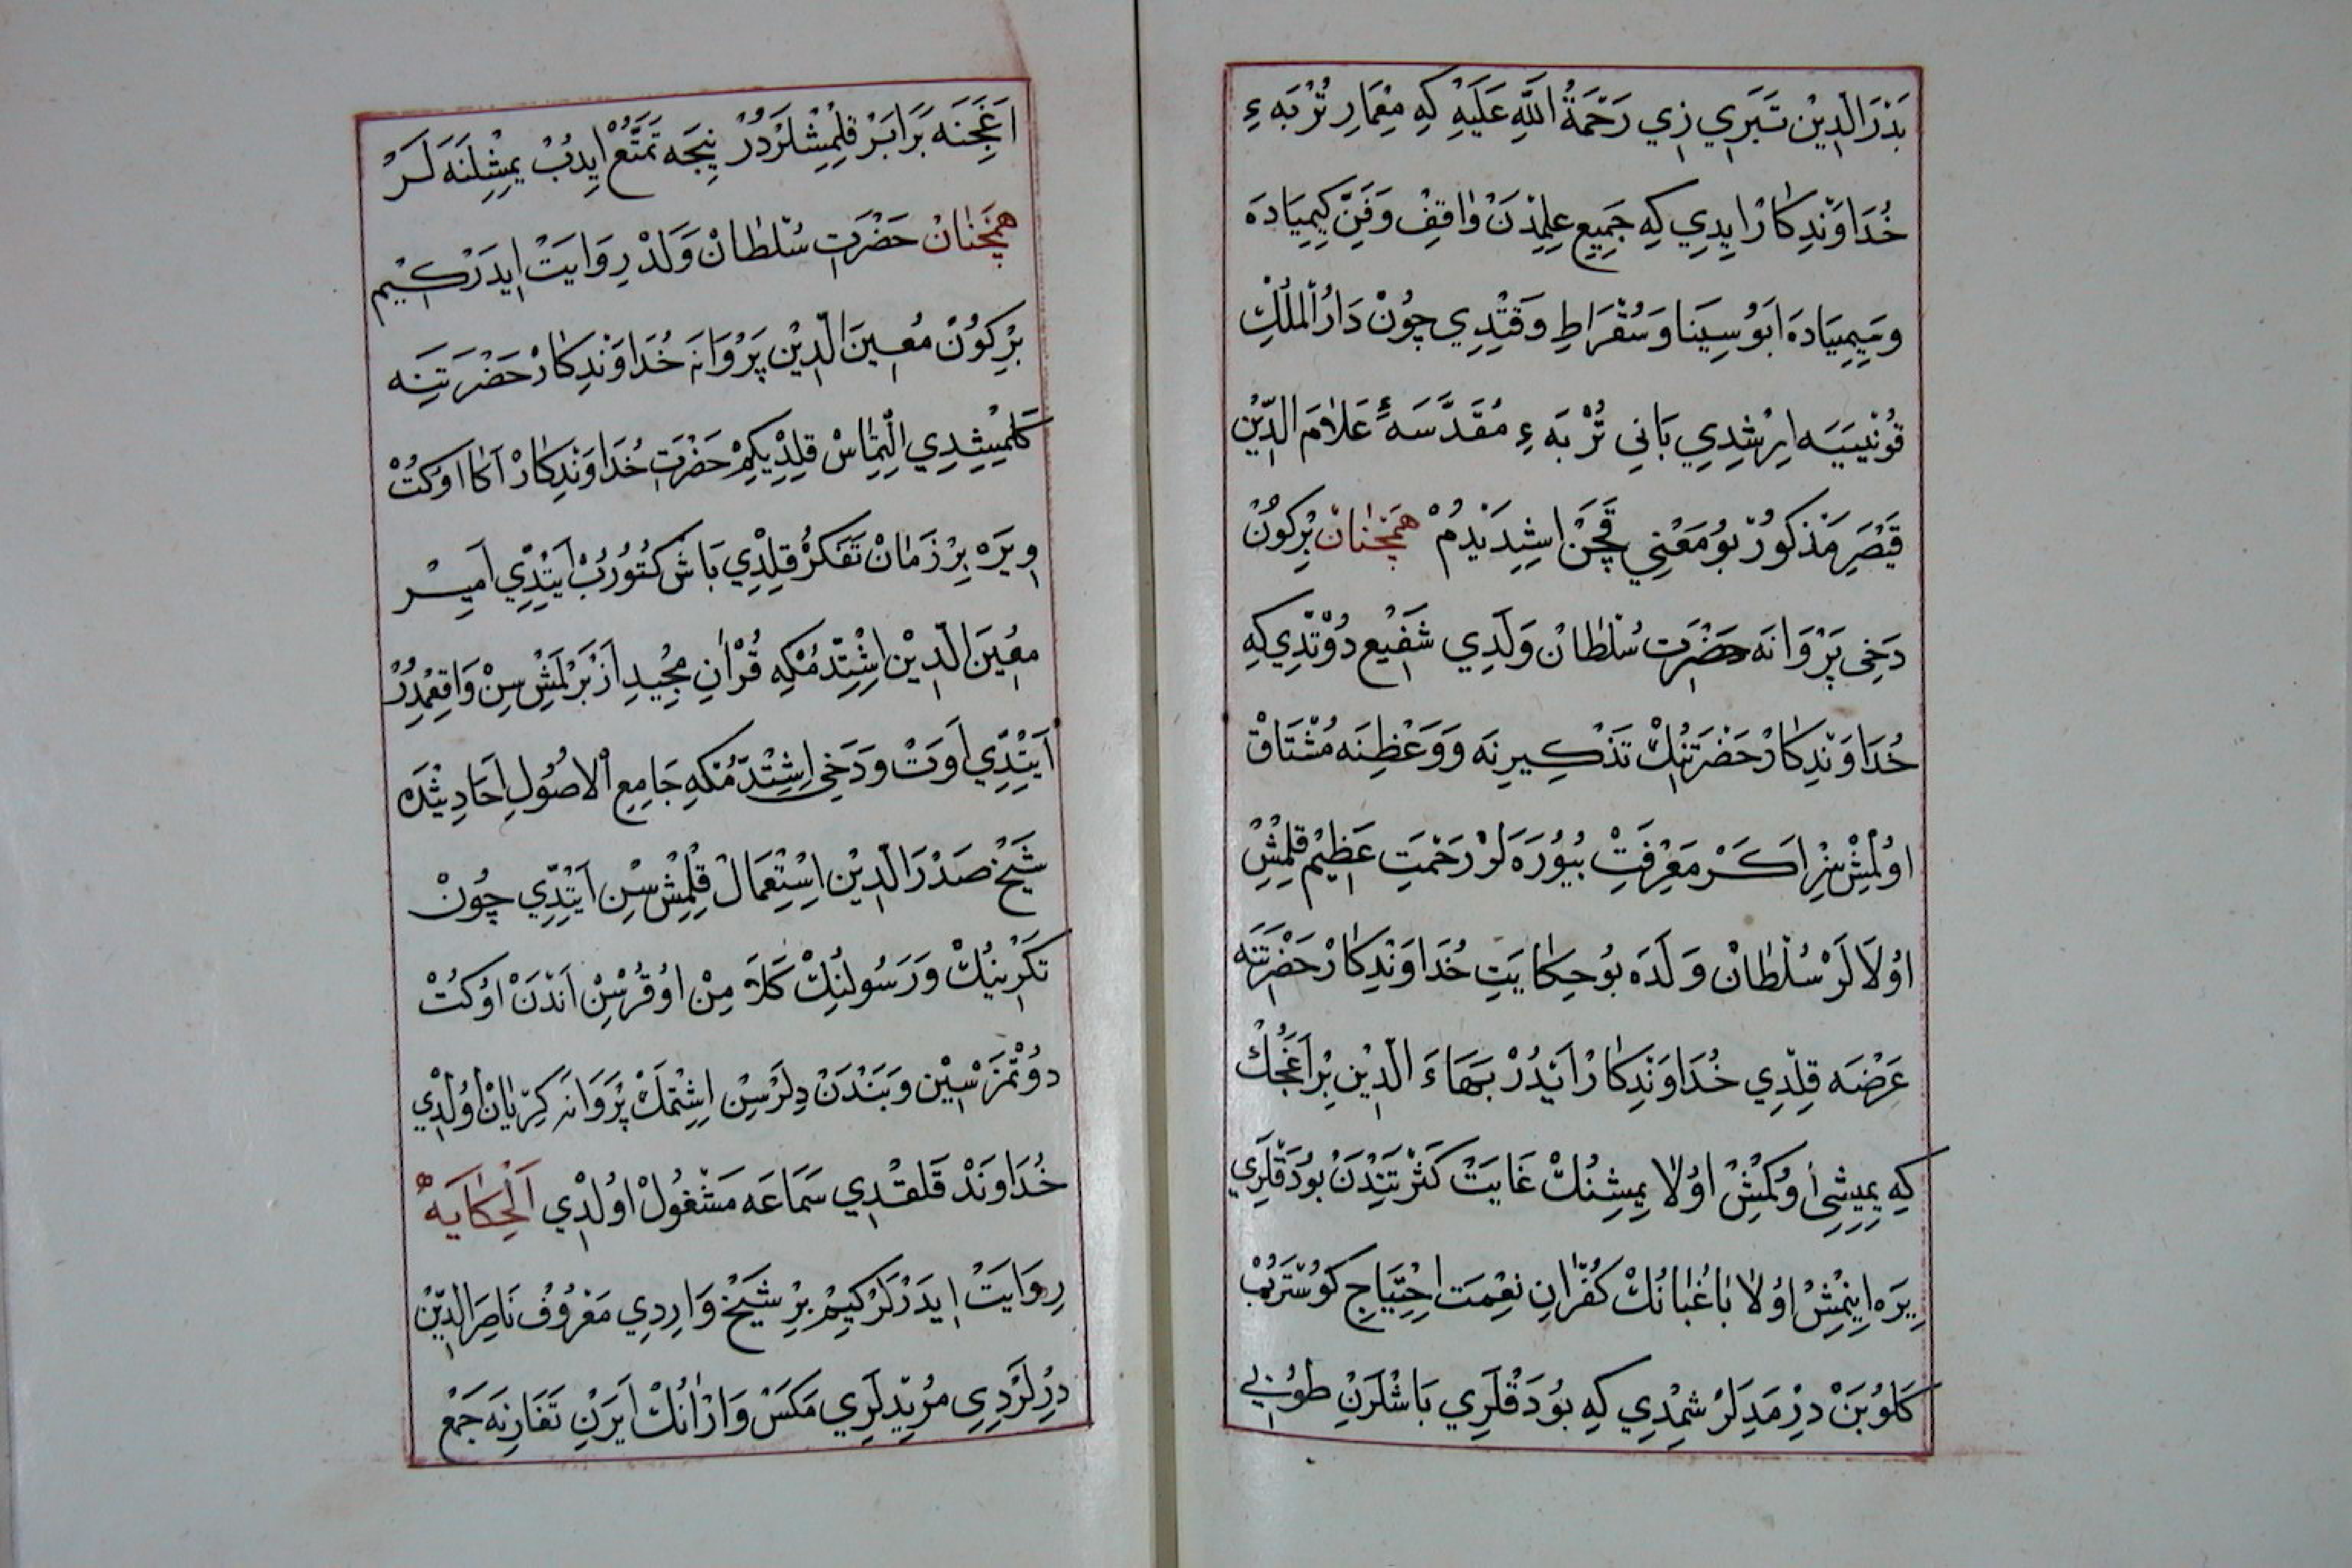 بَدْرَ الدِّينْ تَبَرِي زِي رَحْمَةُ اللّٰهِ عَلَيْهِ كِهِ مِعْمَارِ تُرْبَهءِ
خُدَاوَنْدِكَارْ ايدِي كِهِ جَمِيعِ عِلِمْدَنْ وَاقِفْ وَفَنِّ كِيمِيَادَه
وَسِيمِيَادَه اَبُو سِينَا وَسُقْرَاطِ وَقْتِدِي چُونْ دَارُ الْمُلْكِ
قُونْيَيَه اِرِشْدِي بَانِي تُرْبَهءِ مُقَدَّسَهءِ عَلَامَ الدِّينْ
قَيْصَرِ مَذْكُورْ بُو مَعْنِي قَچَنْ اِشِدَيْدُمْ هَمْچُنَانْ بِرْ كُونْ
دَخِي پَرْوَانَه حَضْرَتِ سُلْطَانْ وَلَدِي شَفِيعْ دُوتْدِي كِهِ
خُدَاوَنْدِكَارْ حَضْرَتِنُكْ تَذْكِيرِنَه وَوَعْظِنَه مُشْتَاقْ
اوُلْمِشِزْ اَكَرْ مَعْرِفَتْ بُيُورَه لَرْ رَحْمَتِ عَظِيمْ قِلْمِشْ
اوُلَالَرْ سُلْطَانْ وَلَدَه بُو حِكَايَتِ خُدَاوَنْدِكَارْ حَضْرَتِنَه
عَرْضَه قِلْدِي خُدَاوَنْدِكَارْ اَيْدُرْ بَهَاءَ الدِّينِ بِرْ اَغَجُكْ
كِهِ يِمِيشِي اُوكُشْ اوُلَا يِمِشِنُكْ غَايَتْ كَثْرَتِنْدَنْ بُودَقْلَرِي
يِرَه اِينْمِشْ اوُلَا بَاغْبَانُكْ كُفْرَانِ نِعْمَتْ اِحْتِيَاجِ كُوسْتَرُبْ
كَلُوبَنْ دِرْمَدِلَرْ شِمْدِي كِهِ بُودَقْلَرِي بَاشْلَرِنِ طُوبِي
اَغَجِنَه بَرَابَرْ قِلْمِشْلَرْدُرْ نِيجَه تَمَتُّعْ ايدُبْ يِمِشْلَنَه لَرْ
هَمْچُنَانْ حَضْرَتِ سُلْطَانْ وَلَدْ رِوَايَتْ ايدَرْ كِيمْ
بِرْ كُونْ مُعِينَ الدِّينْ پَرْوَانَه خُدَاوَنْدِكَارْ حَضْرَتِنَه
كَلْمِيشِدِي اِلْتِمَاسْ قِلْدِي كِمْ حَضْرَتِ خُدَاوَنْدِكَارْ اَكَا اوُكُتْ
وِيرَه بِرْ زَمَانْ تَفَكُّرْ قِلْدِي بَاشْ كُتُورُبْ اَيِتْدِي اَمِيرْ
مُعِينَ الدِّينْ اِشِتْدُمْكِه قُرْاٰنِ مَجِيدِ اَزْبَرْلَمِشْ سِنْ وَاقِعْمِدُرْ
اَيِتْدِي اَوَتْ وَدَخِي اِشِتْدُمْكِه جَامِعِ الْاُصُولِ اَحَادِيثْدَه
شَيْخْ صَدْرَ الدِّينْ اِسْتِعْمَالْ قِلْمِشْ سِنْ اَيِتْدِي چُونْ
تَكْرِينُكْ وَرَسُولِنُكْ كَلَامِنْ اوُقُرْسِنْ اَنْدَنْ اوُكُتْ
دُوتْمَزْسِينْ وَبَنْدَنْ دِلَرْسِنْ اِشِتْمَكْ پَرْوَانَه كِرْيَانْ اوُلْدِي
خُدَاوَنْدْ قَلقْدِي سَمَاعَه مَشْغُولْ اوُلْدِي اَلْحِكَايَةُ
رِوَايَتْ ايدَرْلَرْ كِيمْ بِرْ شَيْخْ وَارِدِي مَعْرُوفْ نَاصِرَ الدِّينْ
دِرْلَرْدِي مُرِيدْلَرِي مَكَسْ وَارْ اَنُكْ اَيَرْنِ تَغَارِنَه جَمْع